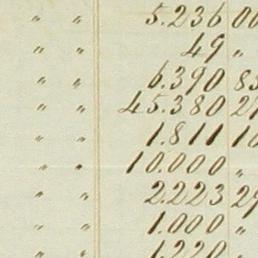 " " 5.236 00
" " 49 "
" " 6.390 83
" " 45.380 2
" " 1.811 1
" " 10.000 "
" " 2.223 29
" " 1.000 "
" " 1.220 "